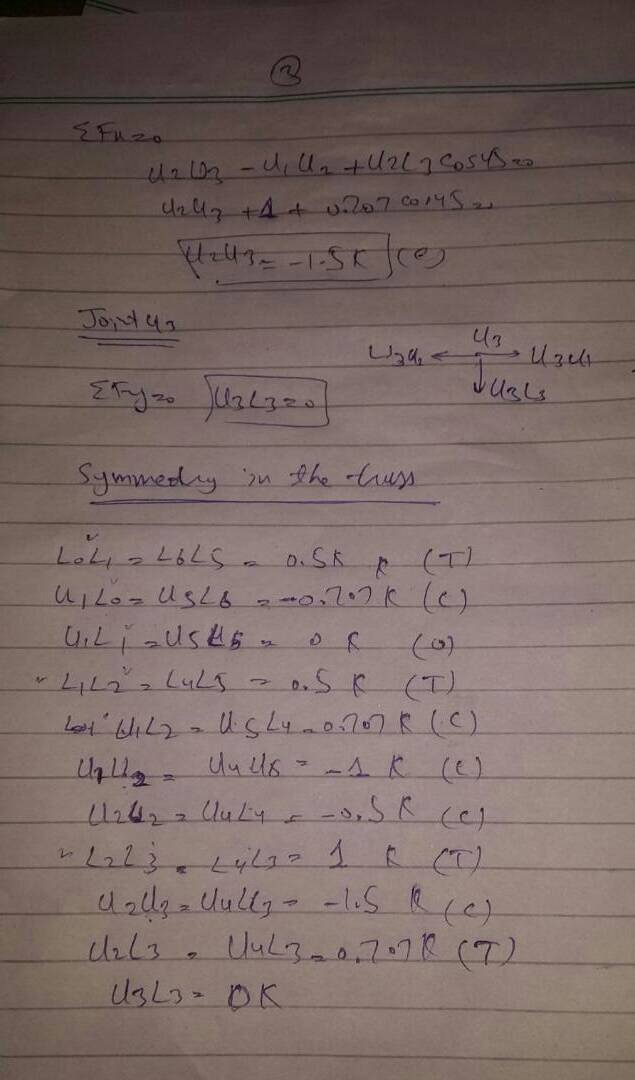 3
ΣFx=0
U2U3 - U1U2 + U2L3 cos45=0
U2U3 + 1 + 0.707 cos45=0
U2U3 = -1.5K (C)
Joint U3
U3
U3U2 U3U4
ΣFy=0 U3L3=0
U3L3
Symmetry in the truss
L0L1 = L6L5 = 0.5K (T)
U1L0 = U5L6 = -0.707K (C)
U1L1 = U5L5 = 0 K (0)
L1L2 = L4L5 = 0.5 K (T)
U1L2 = U5L4 = 0.707 K (C)
U1U2 = U4U5 = -1 K (C)
U2L2 = U4L4 = -0.5K (C)
L2L3 = L4L3 = 1 K (T)
U2U3 = U4U3 = -1.5 K (C)
U2L3 = U4L3 = 0.707K (T)
U3L3 = 0K